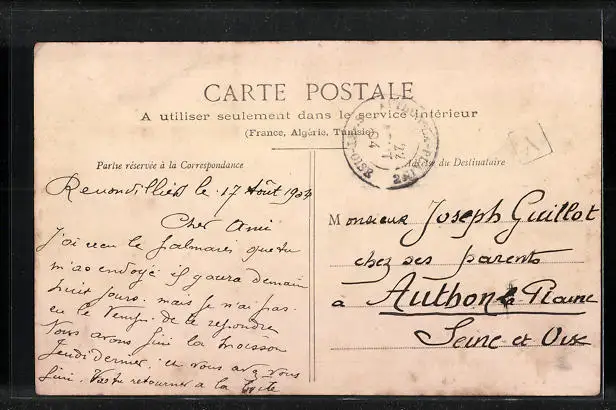 CARTE POSTALE
A utiliser seulement dans le service intérieur
(France, Algérie, Tunisie)
Partie réservée à la Correspondance
Adresse du Destinataire
A
le 17 Août 1904
Cher Ami
J'ai recu le palmarès que tu
m'as endoyé il y aura demain
huit jours. mais je n'ai pas
eu le temps de te repondre
Nous avons fini la moisson
Jeudi dernier. et vous avez vous
fini. Vas tu retourner a la
Monsieur Joseph Guillot
chez ses parents
à Authon la Plaine
Seine et Oise